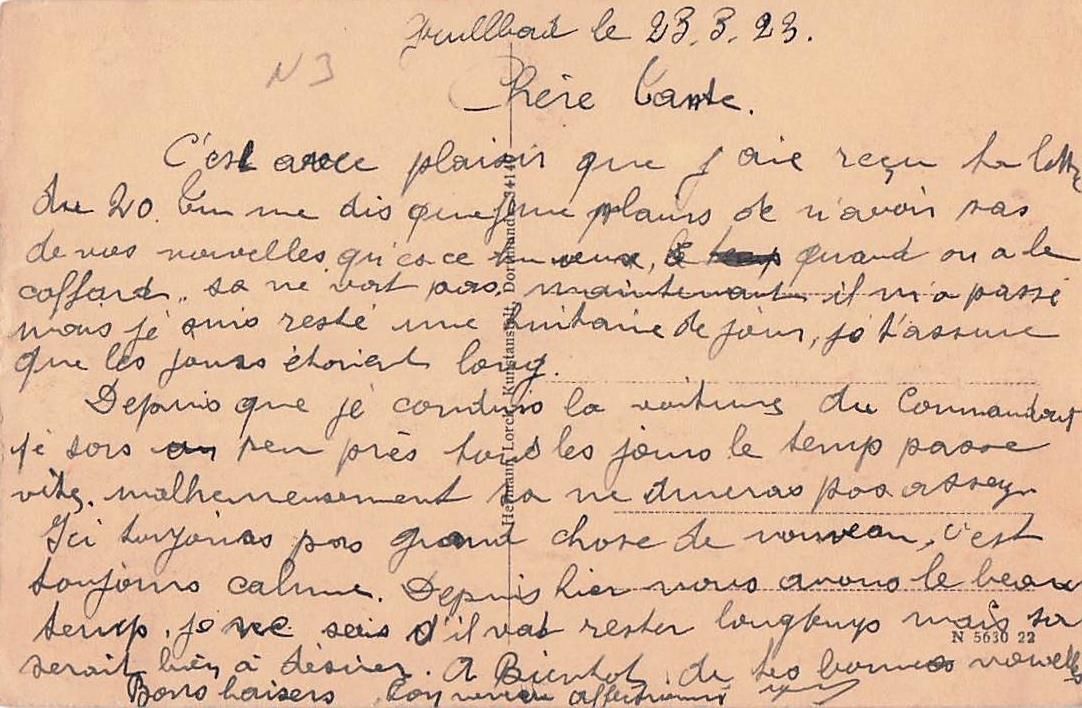 le 23.3.23.
N 3
Chère Tante.
C'est avec plaisir que j'aie reçu ta lettre
du 20. Tu me dis que je me plains de n'avoir pas
de vos nouvelles qu'es ce tu veux, quand on a le
caffard, sa ne vat pas. maintenant il m'a passé
mais je suis resté une huitaine de jour, je t'assure
que les jours étaient long.
Depuis que je conduis la voiture du Commandant
je sors peu près tous les jours le temp passe
vite. malheureusement sa ne dureras pas assez.
Ici toujours pas grand chose de nouveau, c'est
toujours calme. Depuis hier nous avons le beau
temp. je ne sais s'il vat rester longtemps mais sa
serait bien à désirer. A Bientot de tes bonnes nouvelles
Bons baisers Ton neveu affectionné
Hermann Lorch, Kunstanstalt, Dortmund
N 5630 22